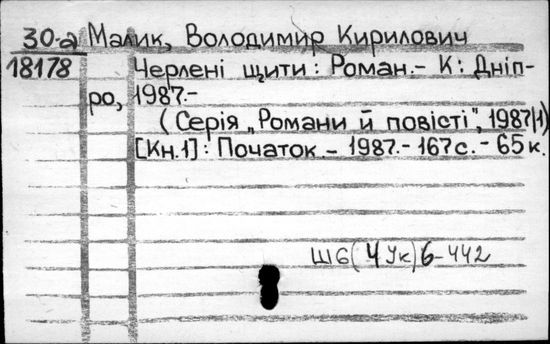 30-а Малик, Володимир Кирилович
18178 Черлені щити: Роман.- К: Дніп-
ро, 1987.-
(Серія „Романи й повісті", 1987(1)
[Кн.1]: Початок. - 1987.- 167 с. - 65 к.
Ш6(4Ук)6-442